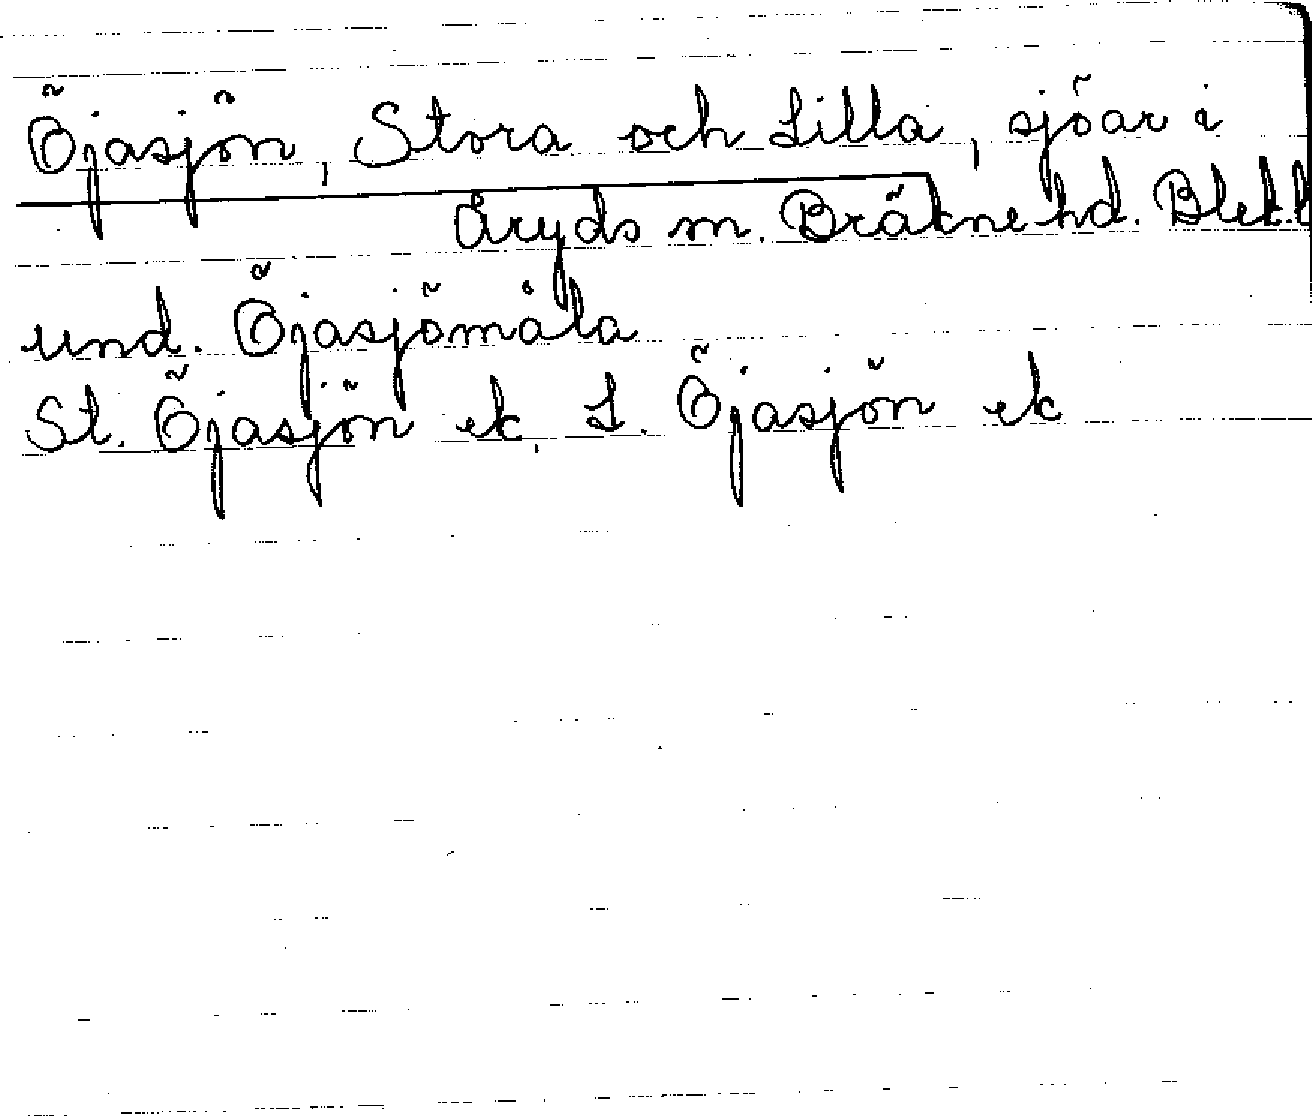 Öjasjön, Stora och Lilla, sjöar i
Åryds sn. Bräkne hd. Blek.l
und. Öjasjömåla
St. Öjasjön ek, L. Öjasjön ek